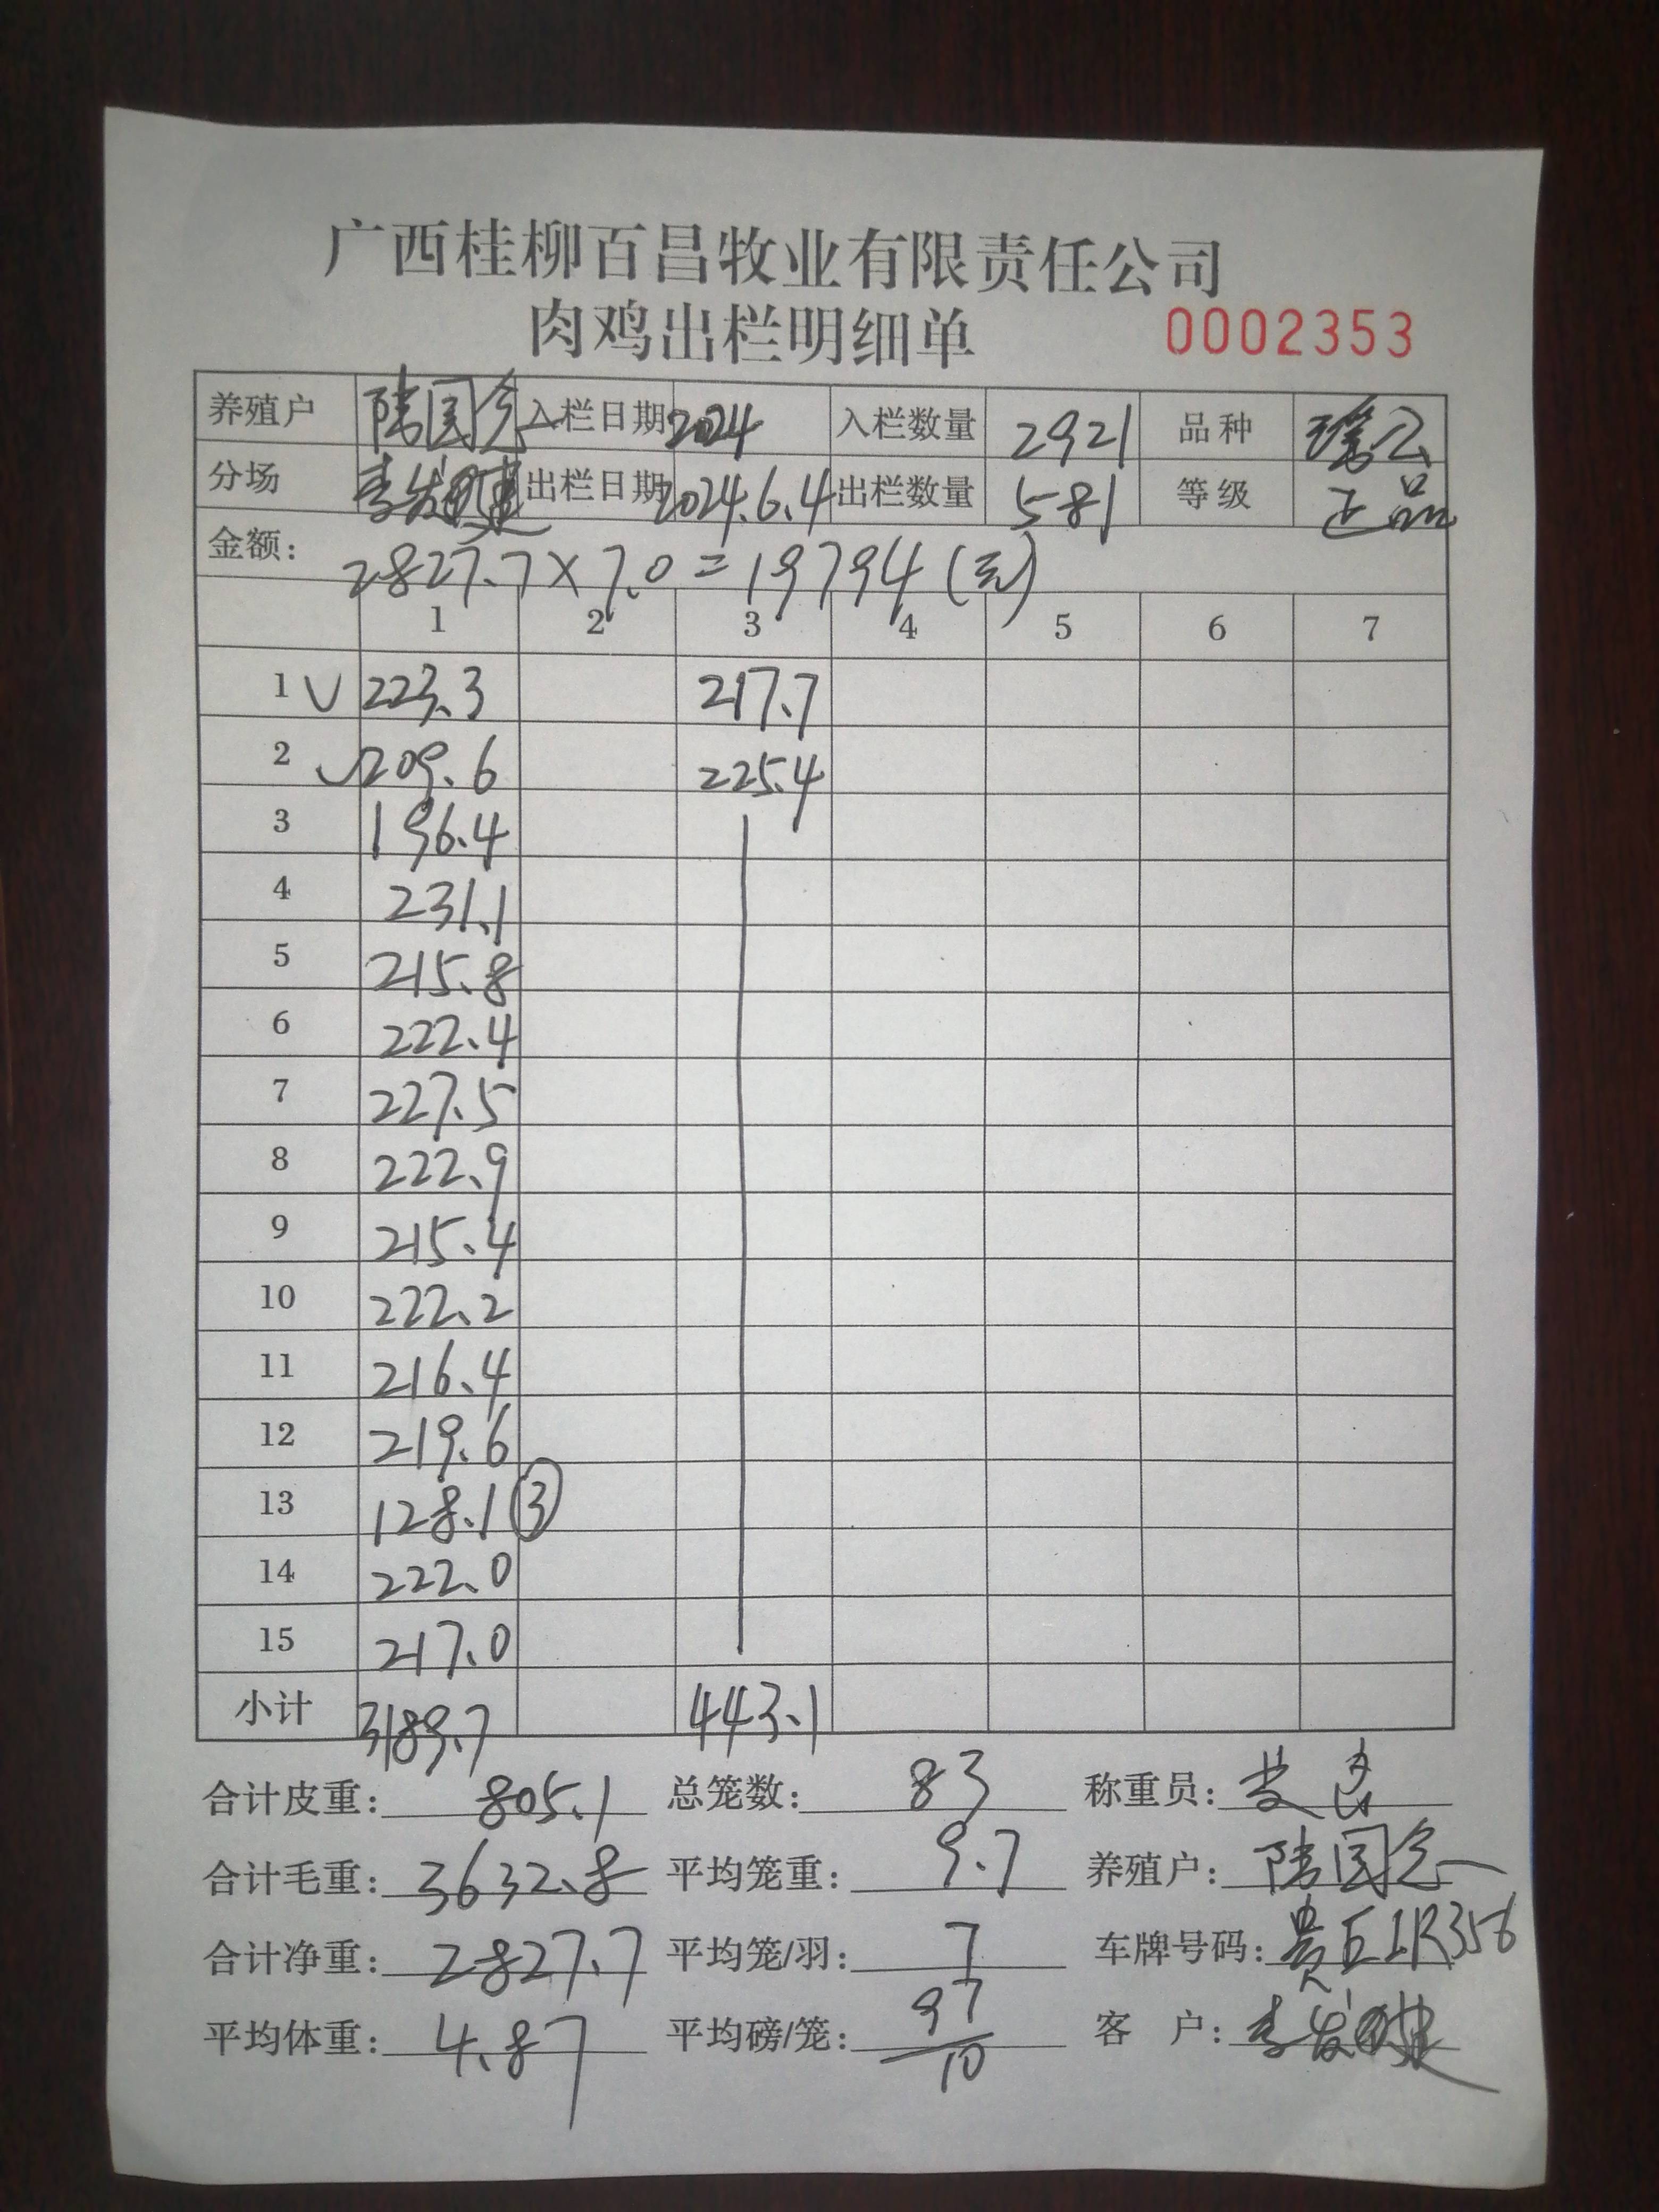 广西桂柳百昌牧业有限责任公司
肉鸡出栏明细单 0002353
养殖户 陆国念 入栏日期 2024 入栏数量 2921 品种 瑶公
分场 李发 出栏日期 2024.6.4 出栏数量 581 等级 正品
金额: 2827.7×7.0=19794(元)
1 2 3 4 5 6 7
1 ✓ 223.3 217.7
2 ✓ 209.6 225.4
3 196.4
4 231.1
5 215.8
6 222.4
7 227.5
8 222.9
9 215.4
10 222.2
11 216.4
12 219.6
13 128.1 ③
14 222.0
15 217.0
小计 3189.7 443.1
合计皮重: 805.1 总笼数: 83 称重员:
合计毛重: 3632.8 平均笼重: 9.7 养殖户: 陆国念
合计净重: 2827.7 平均笼/羽: 7 车牌号码: 贵EIR356
平均体重: 4.87 平均磅/笼: 97/10 客 户: 李发